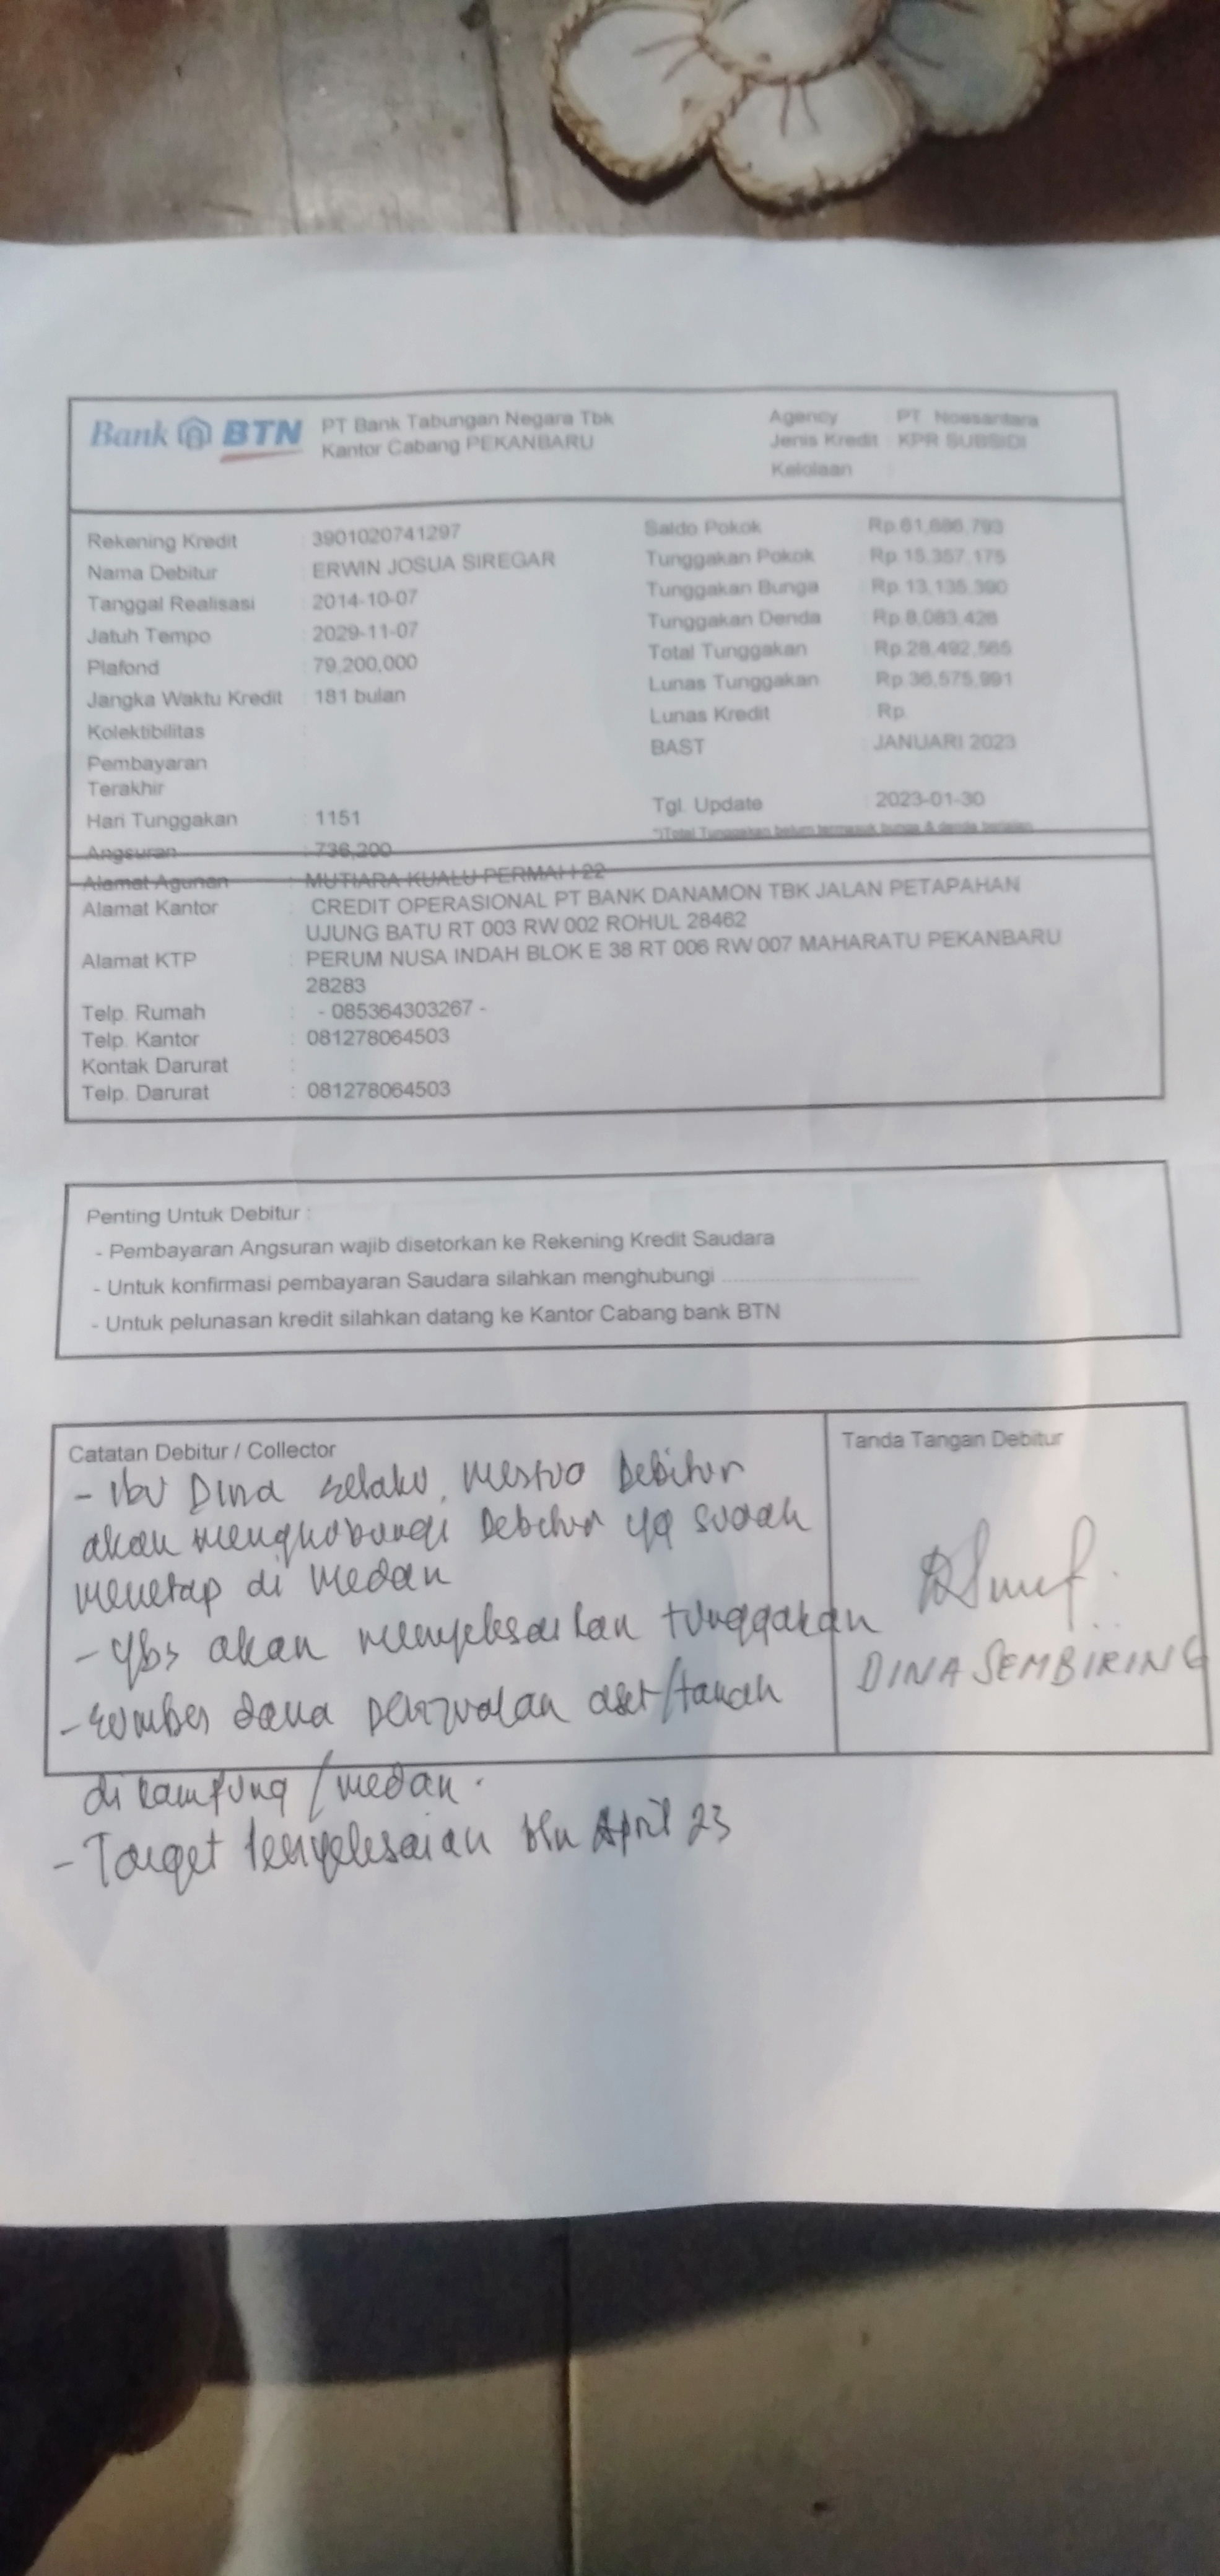 Bank BTN PT Bank Tabungan Negara Tbk
Kantor Cabang PEKANBARU
Agency : PT Nossantara
Jenis Kredit : KPR SUBSIDI
Kelolaan :
Rekening Kredit : 3901020741297
Nama Debitur : ERWIN JOSUA SIREGAR
Tanggal Realisasi : 2014-10-07
Jatuh Tempo : 2029-11-07
Plafond : 79,200,000
Jangka Waktu Kredit : 181 bulan
Kolektibilitas :
Pembayaran :
Terakhir
Hari Tunggakan : 1151
Angsuran : 736,200
Saldo Pokok : Rp.61,686,793
Tunggakan Pokok : Rp.15,357,175
Tunggakan Bunga : Rp.13,135,390
Tunggakan Denda : Rp.8,083,426
Total Tunggakan : Rp.28,492,565
Lunas Tunggakan : Rp.36,575,991
Lunas Kredit : Rp.
BAST : JANUARI 2023
Tgl. Update : 2023-01-30
*)Total Tunggakan belum termasuk bunga & denda berjalan
Alamat Agunan : MUTIARA KUALU PERMAI I 22
Alamat Kantor : CREDIT OPERASIONAL PT BANK DANAMON TBK JALAN PETAPAHAN
UJUNG BATU RT 003 RW 002 ROHUL 28462
Alamat KTP : PERUM NUSA INDAH BLOK E 38 RT 006 RW 007 MAHARATU PEKANBARU
28283
Telp. Rumah : - 085364303267 -
Telp. Kantor : 081278064503
Kontak Darurat :
Telp. Darurat : 081278064503
Penting Untuk Debitur :
- Pembayaran Angsuran wajib disetorkan ke Rekening Kredit Saudara
- Untuk konfirmasi pembayaran Saudara silahkan menghubungi ........................
- Untuk pelunasan kredit silahkan datang ke Kantor Cabang bank BTN
Catatan Debitur / Collector
- Ibu Dina selaku mertua Debitur
akan menghubungi Debitur yg sudah
menetap di medan
- Ybs akan menyelesaikan tunggakan
- sumber dana penjualan aset/tanah
di kampung / medan.
- Target penyelesaian bln April 23
Tanda Tangan Debitur
DINA SEMBIRING